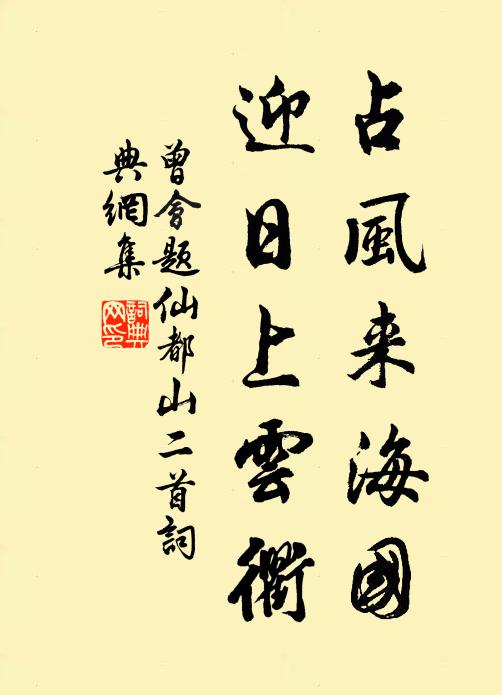 占風来海國
迎日上雲衢
曾會題仙都山二首詞
典網集
詞典
网印